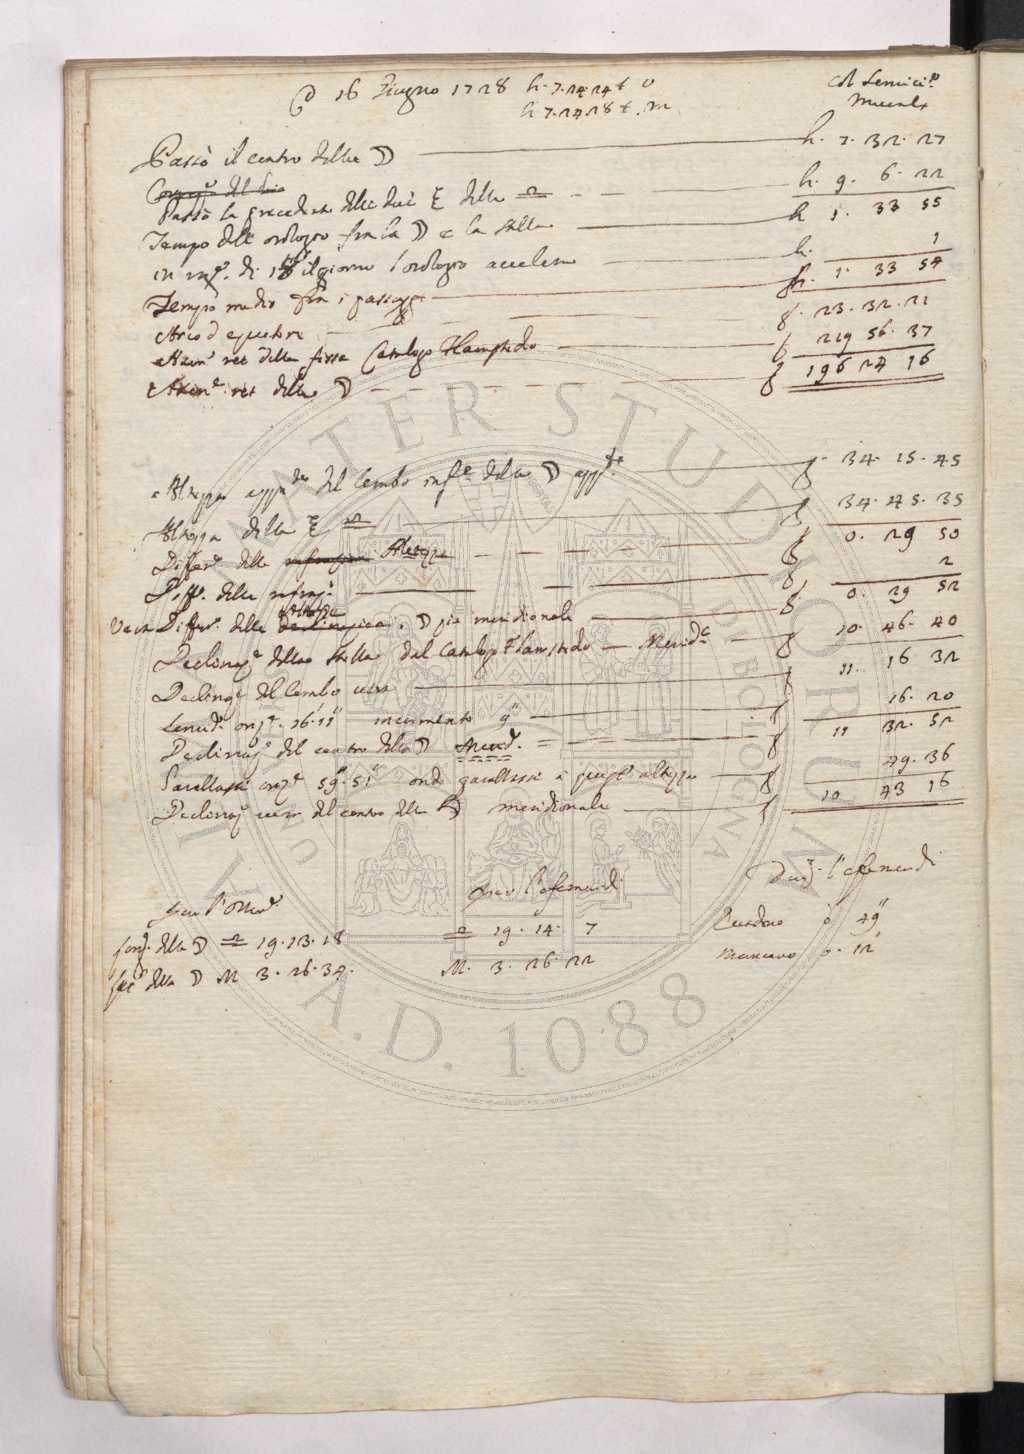 ☿ 16 Giugno 1728 h. 7. 24. 24 t. v
h 7. 24. 28 t. m.
Col Semicir.º
Murale
Passò il centro della ☽ h. 7. 32. 27
Passò la precedente delle due ξ della ♎ h. 9. 6. 22
Tempo dell' orologio fra la ☽ e la stella h 1. 33 55
in di il giorno l'orologio accelera h. 1
Tempo medio fra i passaggi h. 1. 33 54
Arco d'equatore g. 23. 32. 21
Ascen. ret della fissa Catalogo Flamstedio g 219 56. 37
Ascen.e ret della ☽ g 196 24 16
Altezza app.te del lembo inf.e della ☽ g. 34. 15. 45
Altezza della ξ ♎ g 34. 45. 35
Differ.a delle Altezze g 0. 29 50
Diff.a della refraz.e g 2
Vera Differ.a delle Altezze, ☽ più meridionale g. 0. 29 52
Declinaz.e della stella dal Catalogo Flamstedio Merid.e g 10. 46. 40
Declinaz.e del lembo vera g 11. 16 32
Semid.o oriz.e 16' 11" incremento 9" 16. 20
Declinaz.e del centro della ☽ Merid. g 11 32. 52
Parallassi oriz.e 59'. 51" onde parallassi a quest' altezza g 49. 36
Declinaz. vera del centro della ☽ meridionale g 10. 43 16
per l'Osserv.
per l'efemeridi
Dunq. l'efemeridi
long. della ☽ ♎ 19. 13. 18
♎ 19. 14. 7
Eccedono 0. 49"
lat. della ☽ M 3. 26. 34.
M. 3. 26. 22
Mancano 0. 12"
A.D. 1088